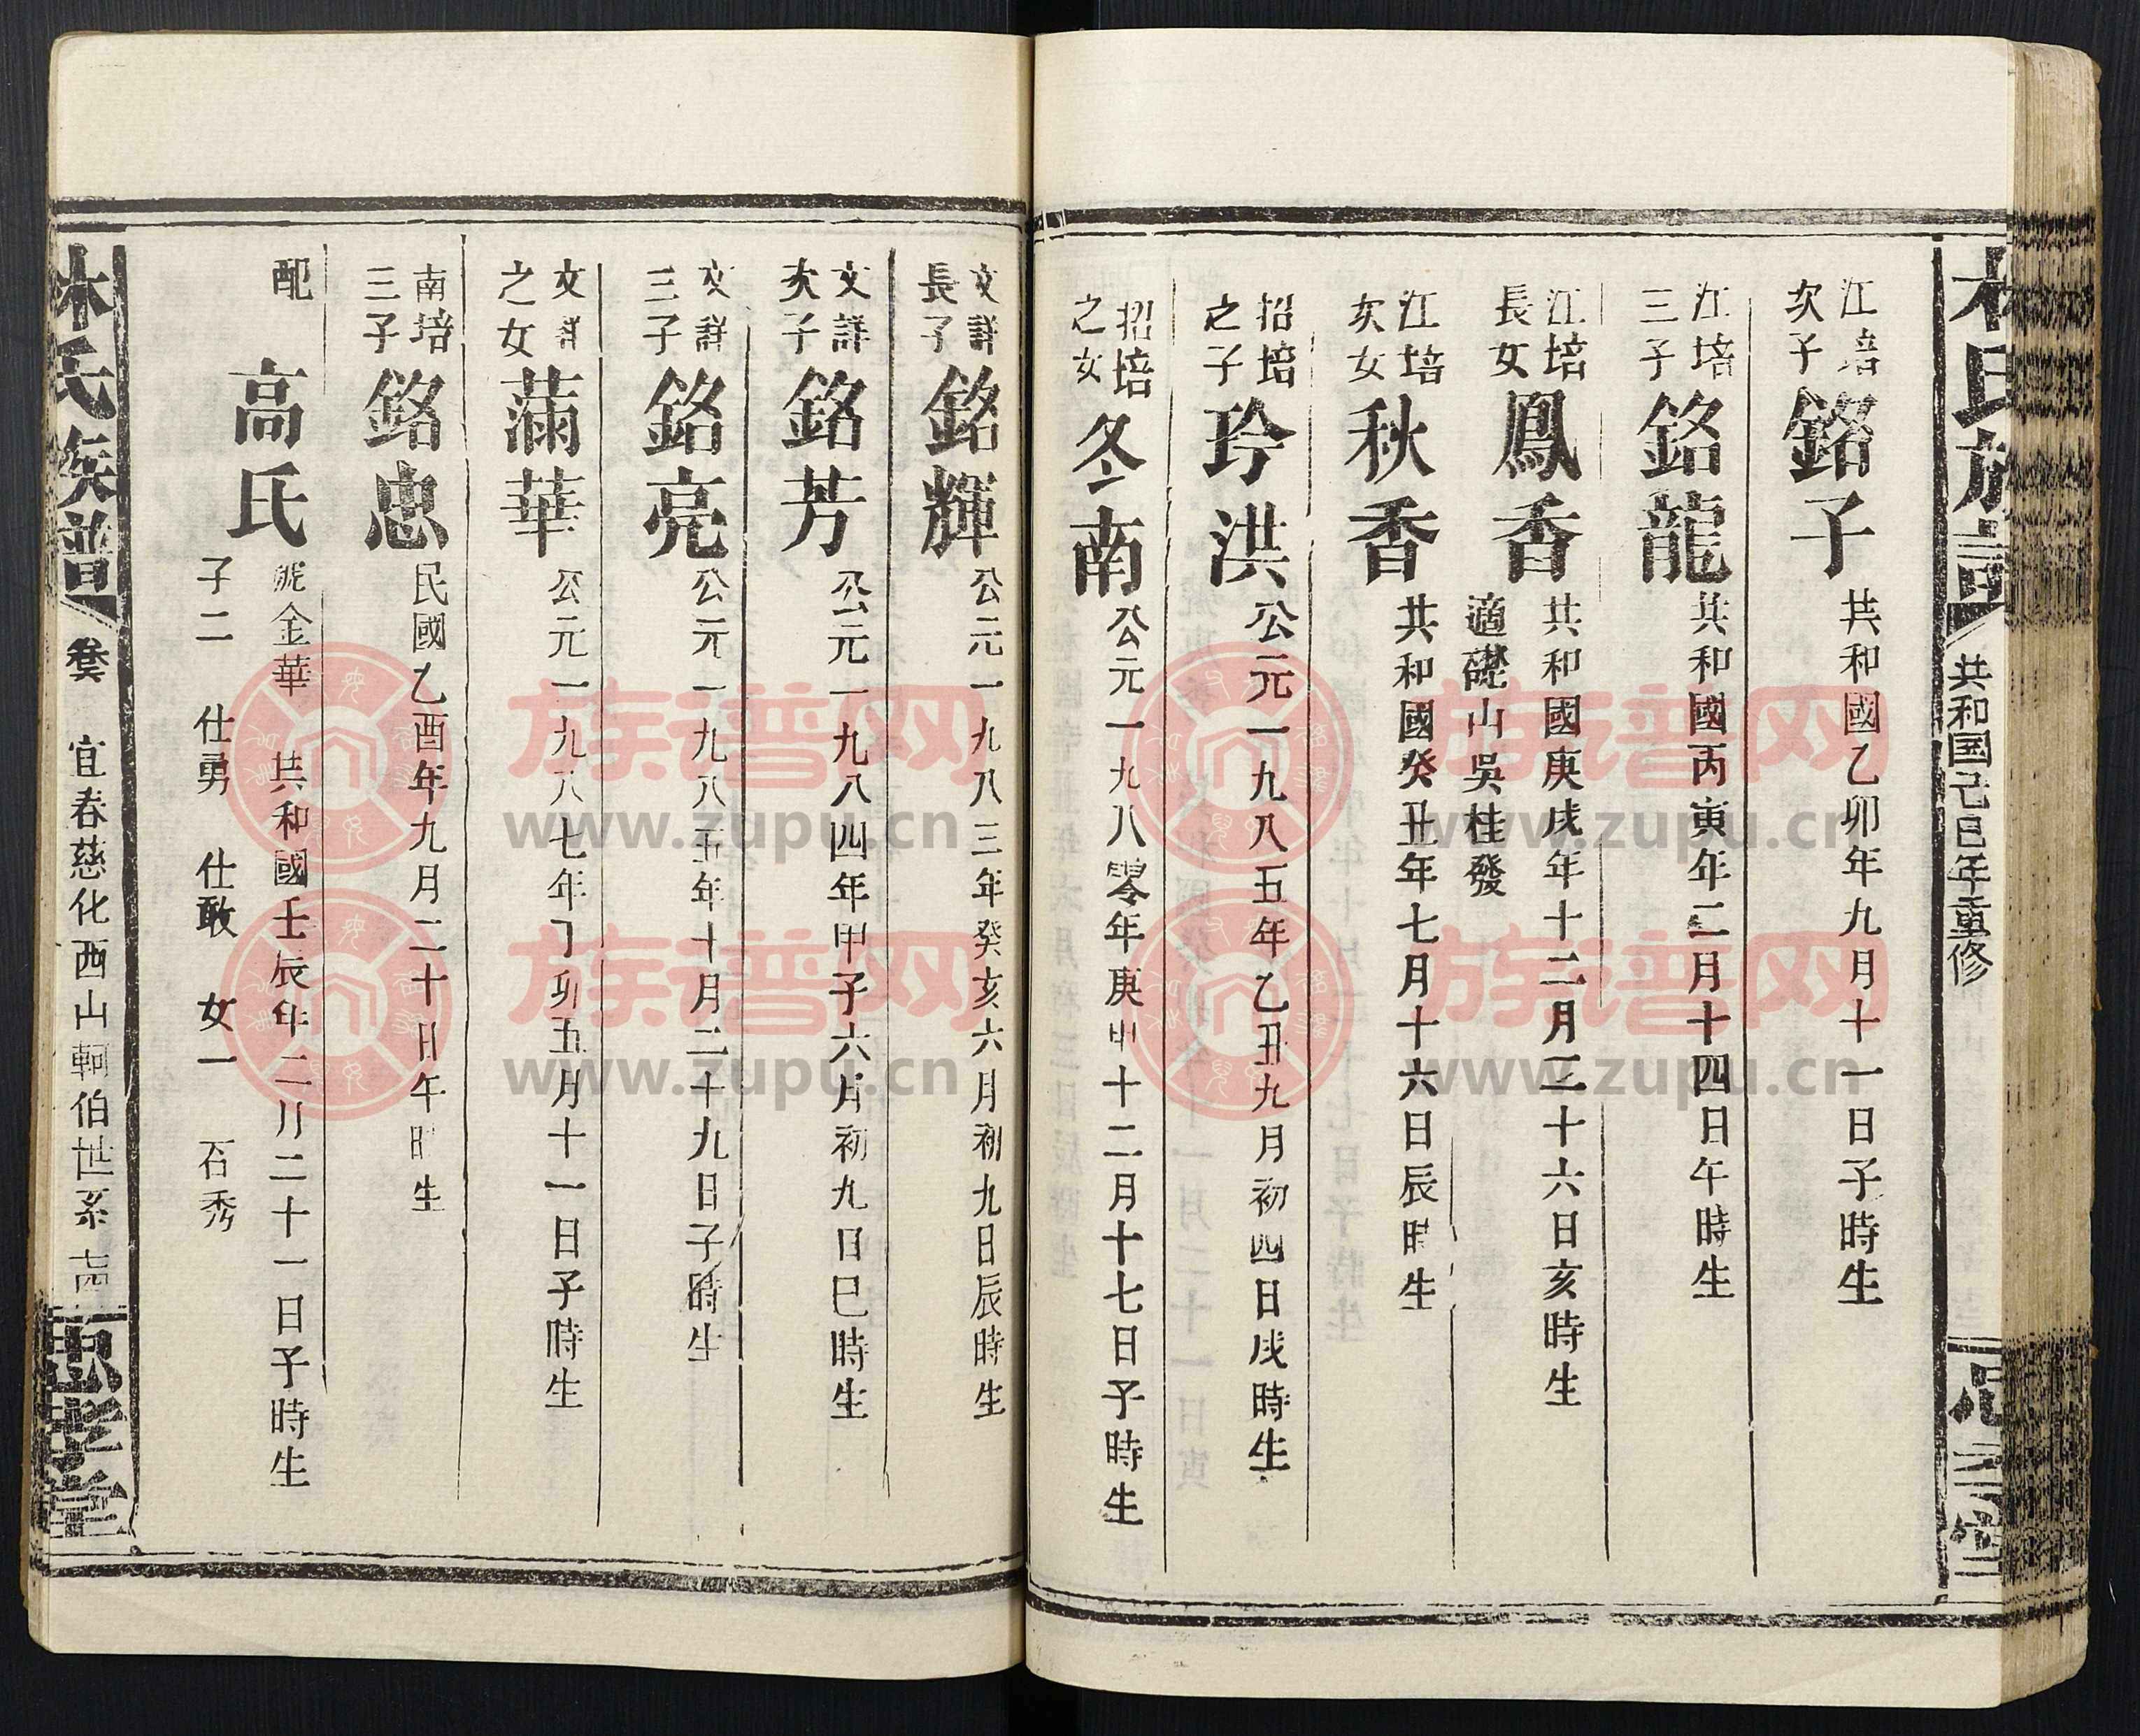 林氏族譜
共和国己巳年重修
忠孝堂
江培
次子
銘子
共和國乙卯年九月十一日子時生
江培
三子
銘龍
共和國丙寅年二月十四日午時生
江培
長女
鳳香
共和國庚戌年十二月二十六日亥時生
適礎山吳桂發
江培
次女
秋香
共和國癸丑年七月十六日辰時生
招培
之子
玲洪
公元一九八五年乙丑九月初四日戌時生
招培
之女
冬南
公元一九八零年庚申十二月十七日子時生
文詳
長子
銘輝
公元一九八三年癸亥六月初九日辰時生
文詳
次子
銘芳
公元一九八四年甲子六月初九日巳時生
文詳
三子
銘亮
公元一九八五年十月二十九日子時生
文詳
之女
滿華
公元一九八七年丁卯五月十一日子時生
南培
三子
銘忠
民國乙酉年九月二十日午時生
配
高氏
號金華 共和國壬辰年二月二十一日子時生
子二 仕勇 仕敢 女一 石秀
林氏族譜
卷六 宜春慈化西山軻伯世系 七四
忠孝堂
族谱网
www.zupu.cn
族谱网
www.zupu.cn
族谱网
www.zupu.cn
族谱网
www.zupu.cn